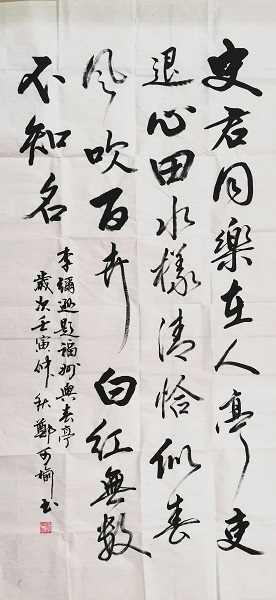 史君同樂在人亭吏
退心田水樣清恰似春
風吹百卉白紅無數
不知名
李彌遜題福州與春亭
歲次壬寅仲秋鄭可榆書